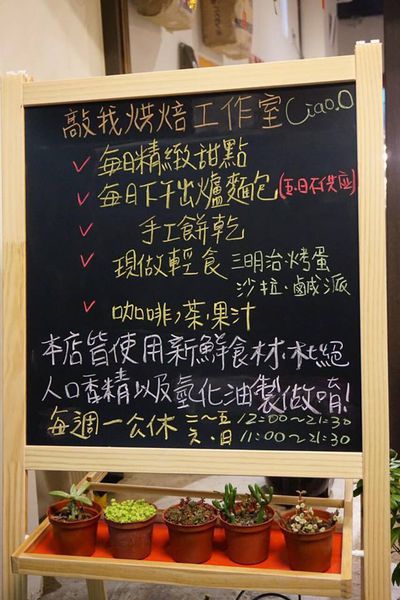 敲我烘焙工作室 Ciao.O
✓ 每日精緻甜點
✓ 每日下午出爐麵包(五.日不供應)
✓ 手工餅乾
✓ 現做輕食 三明治烤蛋
沙拉.鹹派
✓ 咖啡,茶.果汁
本店皆使用新鮮食材.杜絕
人口香精以及氫化油製做唷!
每週一公休 二~五 12:00~21:30
六.日 11:00~21:30